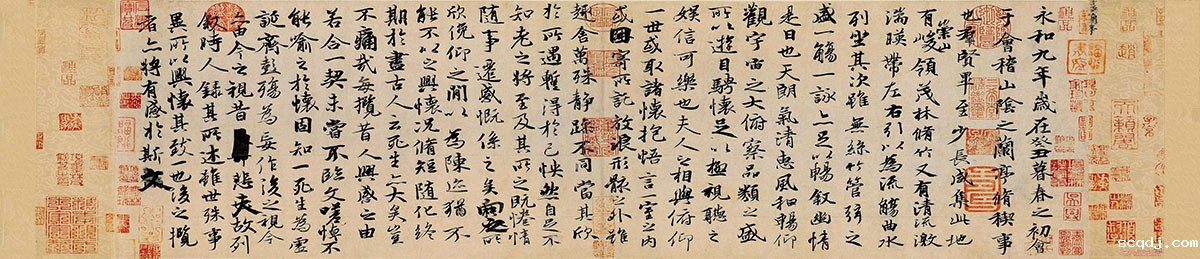 永和九年歲在癸丑暮春之初會
于會稽山陰之蘭亭脩稧事
也羣賢畢至少長咸集此地
有崇山峻領茂林脩竹又有清流激
湍暎帶左右引以為流觴曲水
列坐其次雖無絲竹管弦之
盛一觴一詠亦足以暢叙幽情
是日也天朗氣清惠風和暢仰
觀宇宙之大俯察品類之盛
所以遊目騁懷足以極視聽之
娛信可樂也夫人之相與俯仰
一世或取諸懷抱悟言一室之內
或因寄所託放浪形骸之外雖
趣舍萬殊靜躁不同當其欣
於所遇蹔得於己怏然自足不
知老之將至及其所之既惓情
隨事遷感慨係之矣向之所
欣俛仰之間以為陳迹猶不
能不以之興懷況脩短隨化終
期於盡古人云死生亦大矣豈
不痛哉每攬昔人興感之由
若合一契未嘗不臨文嗟悼不
能喻之於懷固知一死生為虛
誕齊彭殤為妄作後之視今
亦由今之視昔悲夫故列
叙時人錄其所述雖世殊事
異所以興懷其致一也後之攬
者亦將有感於斯文
scqdj.com